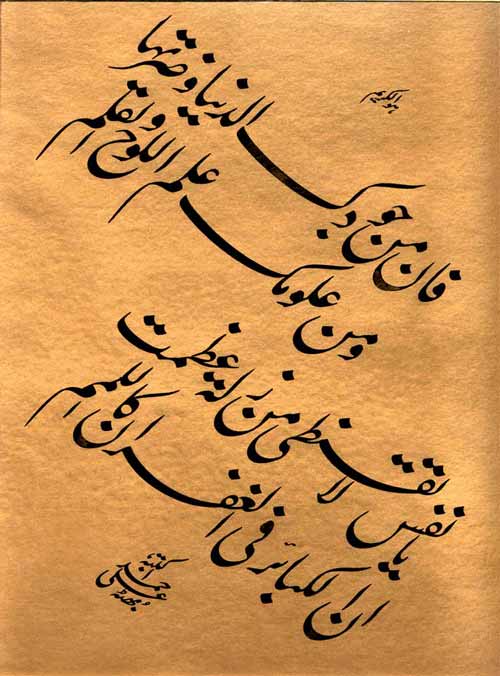 فان من جودك الدنيا وضرتها
ومن علومك علم اللوح والقلم
يا نفس لا تقنطى من زلة عظمت
ان الكبائر فى الغفران كاللمم
كتبه
احمد
على